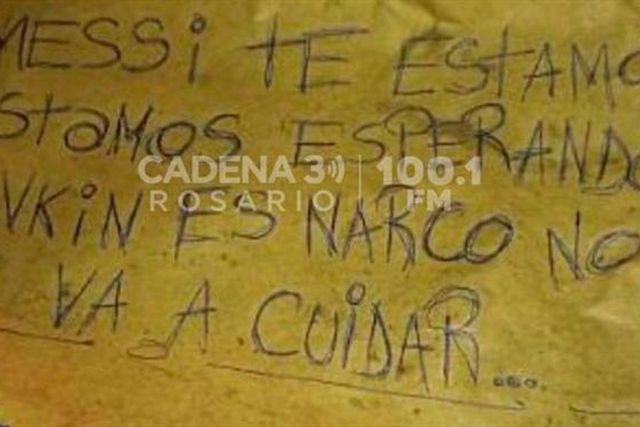 MESSi TE ESTAMO
StaMOS ESPERANDO
CADENA 3 100.1
ROSARIO FM
VKiN ES NARCO NO
VA A CUiDAR...